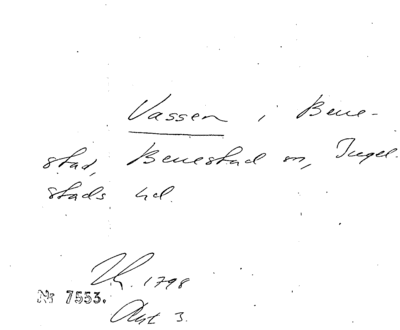 Vassen i Bene-
stad, Benestad sn, Ingel-
stads hd.
1798
№ 7553.
Akt 3.